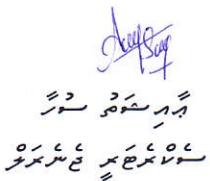 ޢާއިޝަތު ސުހާ
ސެކްރެޓަރީ ޖެނެރަލް